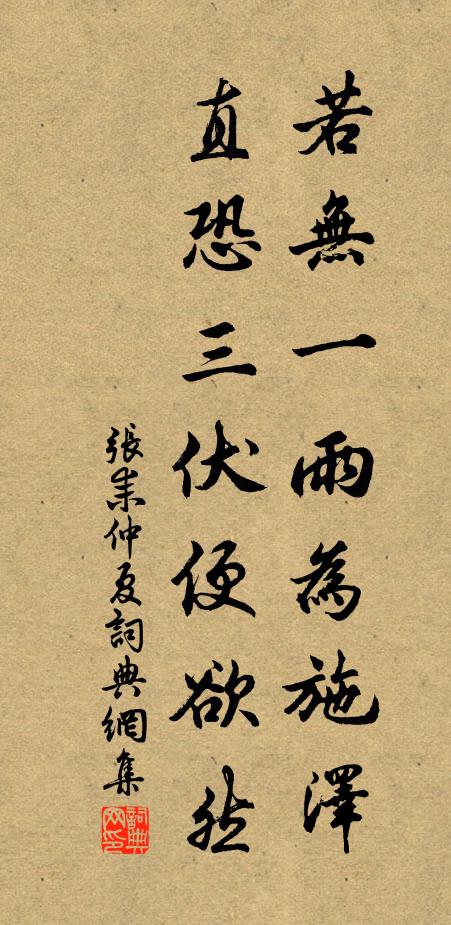 若無一雨為施澤
直恐三伏便欲然
張耒仲夏詞典網集
詞典网印